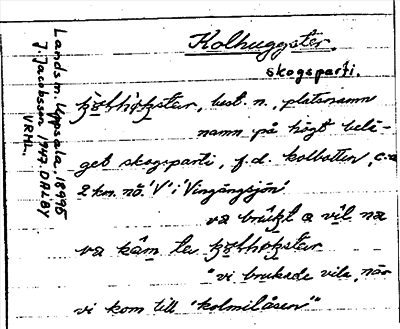 Kolhuggster.
skogsparti.
best. n., platsnamn
namn på högt belä-
get skogsparti, f.d. kolbotten, c:a
2 km. nö. "V" i "Vingängsjön"
va brukt a vil na
va kåm te
"vi brukade vila, när
vi kom till "kolmilåsen""
Landsm. Uppsala, 18995
J. Jacobsson, 1947. DALBY
VRML.